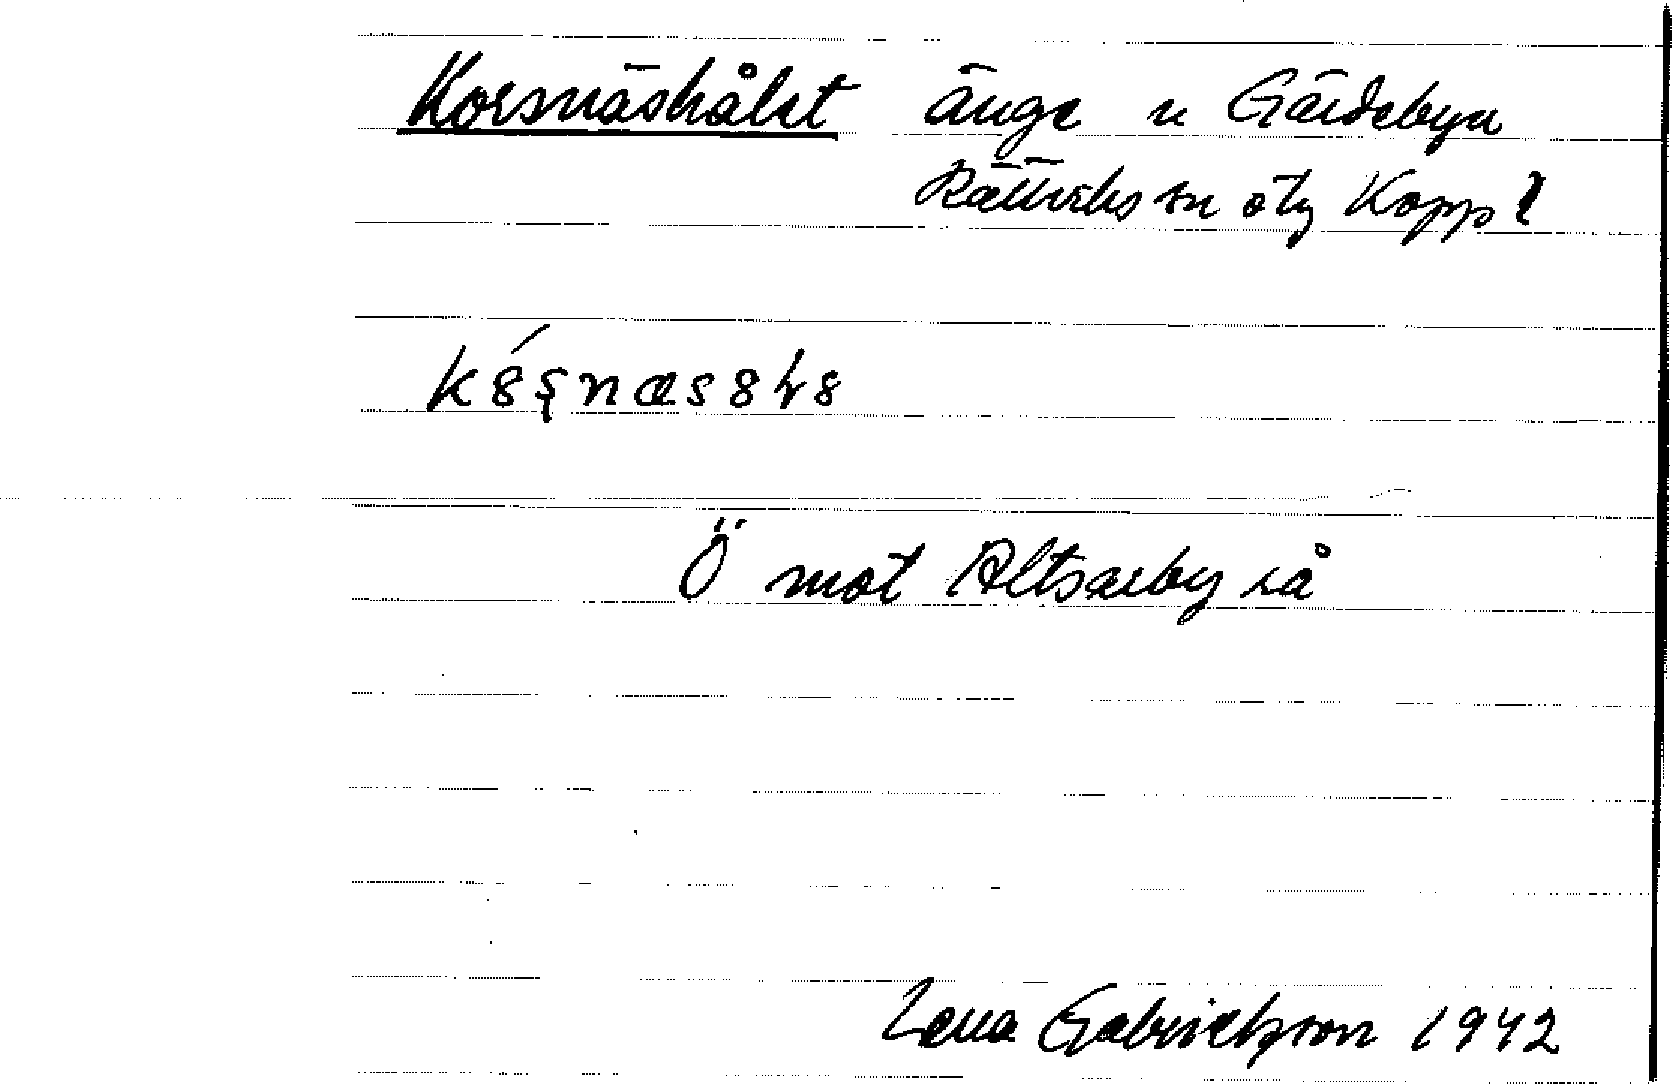 Korsnäshålet änge n Gärdebyn
Rättviks sn östg Kopp l
Ö mot Altsarby rå
Lena Gabrielsson 1942